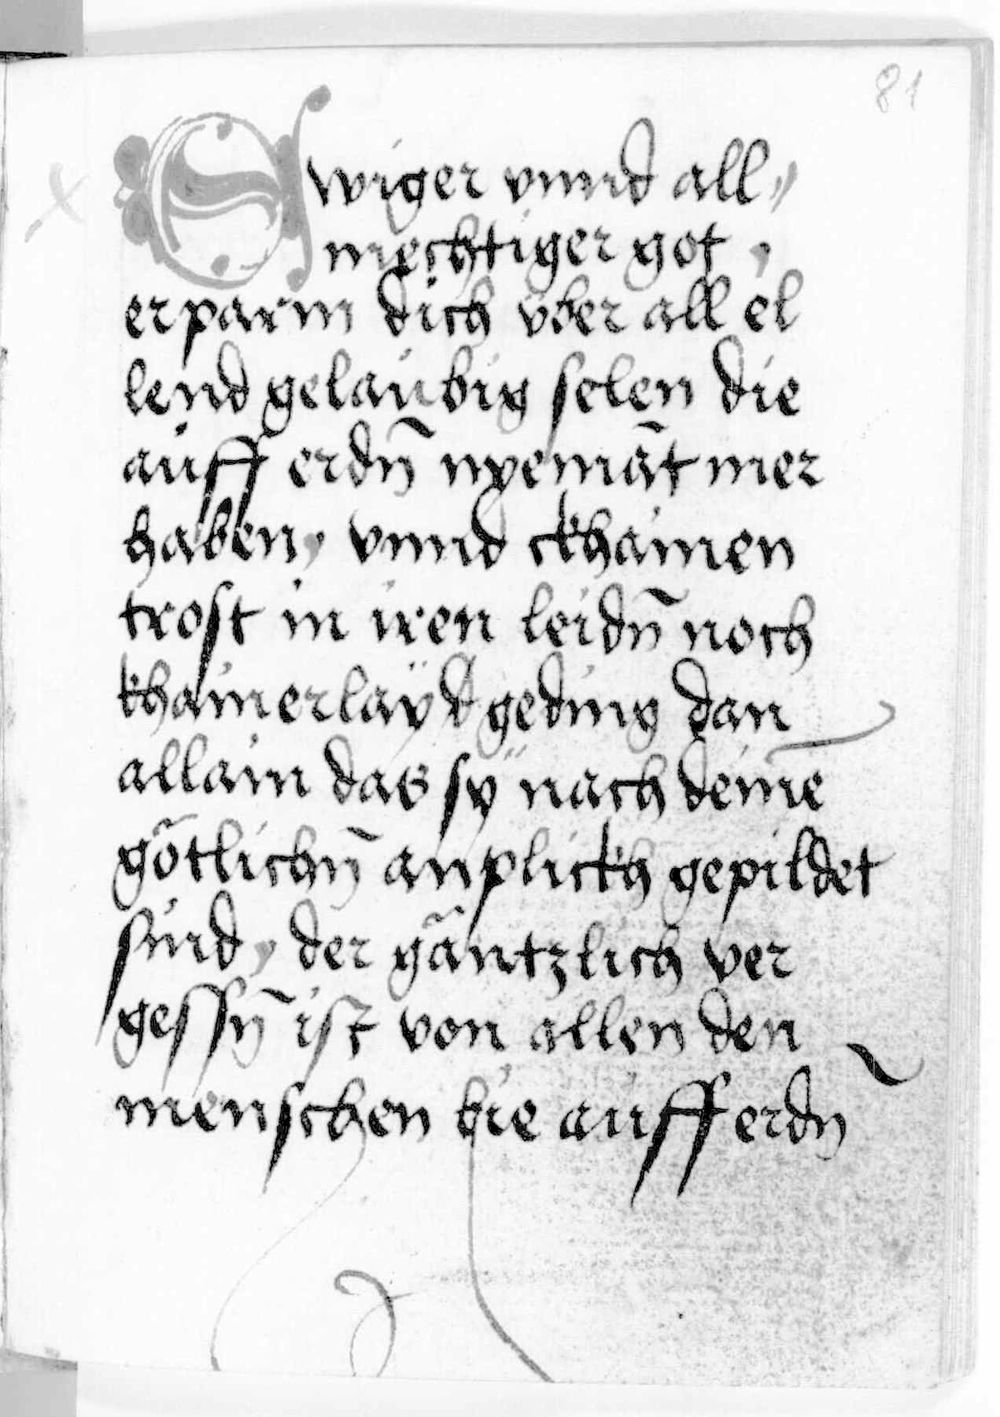 81
Ewiger vnnd all„
mechtiger got ,
erparm dich v̈ber all el
lend gelaubig selen die
auff erdn̄ nyemāt mer
haben, vnnd ckhainen
trost in iren leidn̄ noch
khainerlaÿd geding dan
allain das sÿ nach deinē
gőtlichn̄ anplickh gepildet
sind, der gäntzlich ver
gessn̄ ist von allen den
menschen hie auff erdn̄